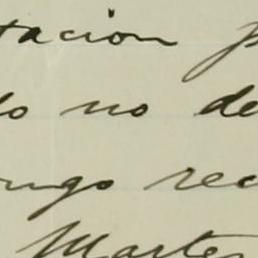 tacion p
do no de
engo rec
Martes